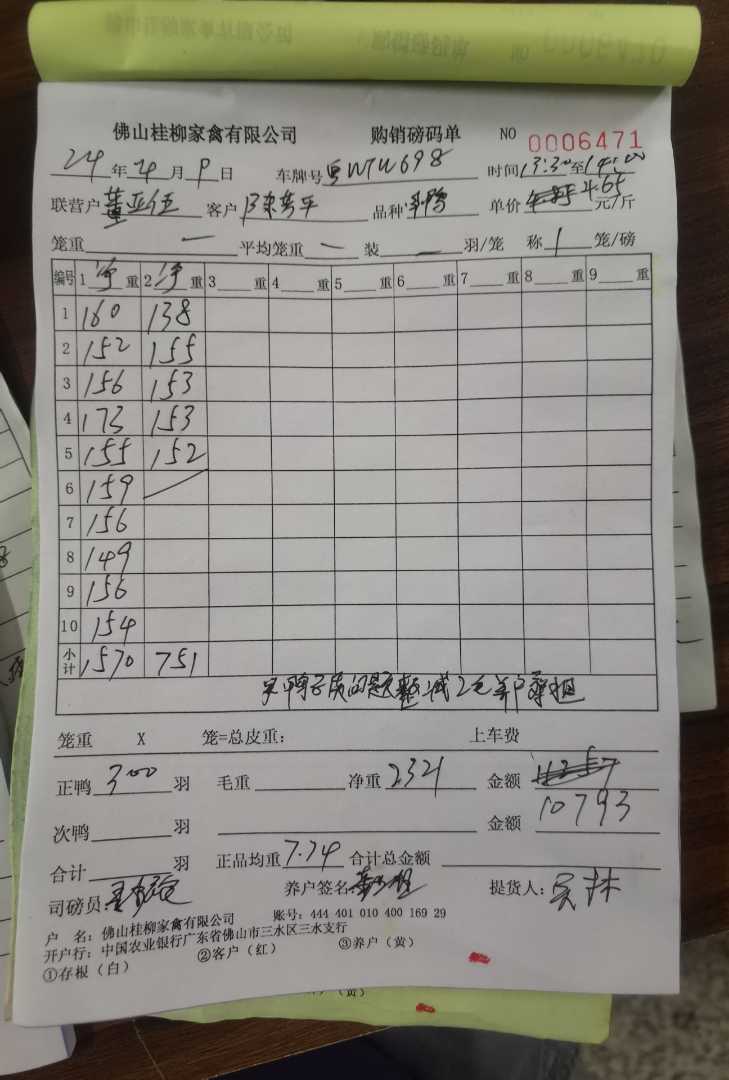 佛山桂柳家禽有限公司 购销磅码单 NO 0006471
24年4月9日 车牌号 粤WTW698 时间13:30至14:00
联营户 董亚伍 客户 陈秀平 品种 单价 4.65 元/斤
笼重 一 平均笼重 一 装 一 羽/笼 称 1 笼/磅
编号 1净重 2净重 3 重 4 重 5 重 6 重 7 重 8 重 9 重
1 160 138
2 152 155
3 156 153
4 173 153
5 155 152
6 159
7 156
8 149
9 156
10 154
小计 1570 751
鸭子质问题 减2毛 养户承担
笼重 X 笼=总皮重: 上车费
正鸭 300 羽 毛重 净重 2321 金额
10793
次鸭 羽 金额
合计 羽 正品均重 7.74 合计总金额
司磅员: 养户签名 提货人: 吴林
户 名: 佛山桂柳家禽有限公司 账号: 444 401 010 400 169 29
开户行: 中国农业银行广东省佛山市三水区三水支行
①存根(白) ②客户(红) ③养户(黄)